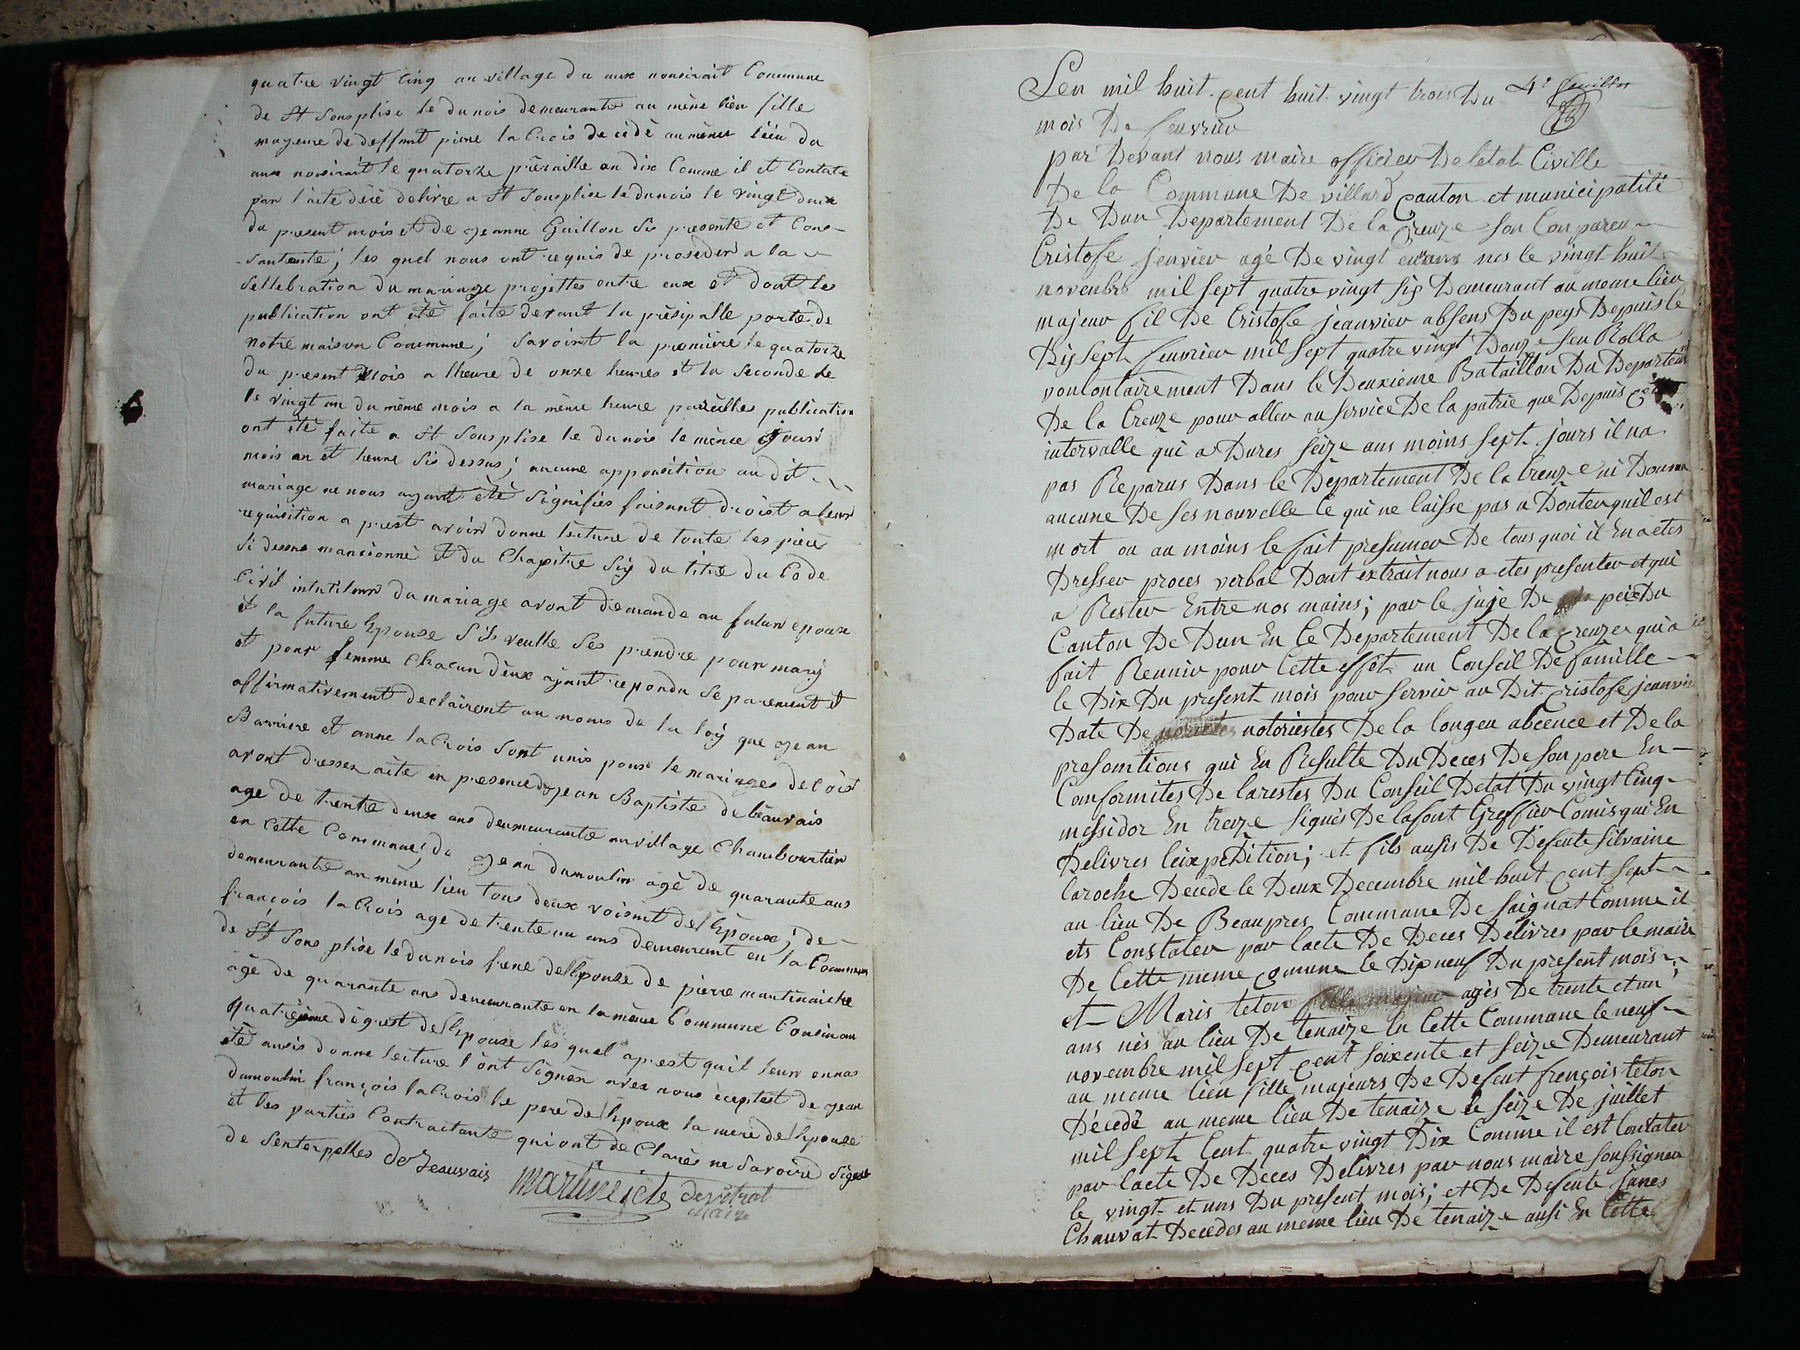 quatre vingt cinq au village du aux nonsirait Commune
de St Sonsplise le dunois demeurante au même lieu fille
mageure de deffint piere la Crois décédé au même lieu du
aux nonsirait le quatorze prèraille an dix Comme il et Contate
par l'aite delivre a St Sonsplise le dunois le vingt deux
du present mois et de Jeanne Guillon Sis presente et Con-
-santente; les quel nous ont requis de proseder a la
Sellebration du mariage projettes entre eux et dont les
publication ont été faite devant la présipalle porte de
notre maison Commune; Savoirt la premiere le quatorze
du present Mois a lheure de onze heures et la Seconde le
le vingt un du même mois a la même heure pareilles publication
ont été faite a St Sonsplise le dunois le même jour
mois an et heure Sis dessus; aucune apposition au dit
mariage ne nous ayant été Signifiés faisant droist a leur
requisition a prest avoir donne lecture de toute les piéce
Si dessus mansionné et du Chapitre Six du titre du Code
Civil intitileur du mariage avont demande au futur epoux
et la future Epouse Sils veulle Ses prendre pour mary
et pour femme Chacun d'eux ayant repondu Separement et
affirmativement declairont au noms de la loÿ que Jean
Barriere et anne la Crois Sont unis pour le mariages de Coist
avont dresser aite en presence de jean Baptiste de beauvais
age de trente deux ans demeurante au village Chambourtier
en Cette Commune; de Jean dumoulin agé de quarante ans
demeurante au même lieu tous deux voisint de l'Epoux; de
françois la Crois age de trente un ans demeurent en la Commun
de St Sons plise le dunois frere de l'Epouse de piere martinaiche
agé de quarante ans demeurante en la même Commune Cousin au
quatrieme degrest de l'Epouse les quel aprest quil leur en nas
été ausis donne lecture l'ont Signer avex nous éceptest de Jean
dumoulin françois la Crois le pere de l'Epoux la mere de l'Epouse
et les parties Contractante qui ont de Clarés ne Savoire Signer
de Senterpelles de beauvais martineiche
maire
4e feuillet
Len mil huit cent huit vingt trois Du
mois De feuvrier
par Devant nous maire officier De letat Civille
De la Commune De villard Canton et municipalité
De Dun Departement De la Creuze son Conpareu
Cristofe jenvier agé De vingt eun ans nes le vingt huit
novenbre mil sept quatre vingt six Demeurant au meme lieu
majeur fil De Cristofe jeanvier absens Du pays Depuis le
Dix sept feuvrier mil sept quatre vingt Douze seu Rolla
voulontairement Dans le Deuxieme Bataillon Du Departem
De la Creuze pour aller au service De la patrie que Depuis cet
intervalle qui a Dures seize ans moins sept jours il na
pas Reparus Dans le Departement De la Creuze ni Donna
aucune De ses nouvelle Ce qui ne laisse pas a Douter quil est
mort ou au moins le fait presumer De tous quoi il En a etes
Dresser proces verbal Dont extrait nous a etes presenter et qui
a Rester Entre nos mains; par le juje De peis Du
Canton De Dun En le Departement De la Creuze qui a
fait Reunir pour Cette effet un Conseil De famille
le Dix Du present mois pour servir au Dit Cristofe jeanvier
Date De notoriestes De la longeu abcence et De la
presomtions qui En Resulte Du Deces De son pere En
Conformites De larestes Du Conseil Detat Du vingt Cinq
messidor En treize Signés De lafont Greffier Comis qui En
Delivres leixpedition; et fils ausis De Defeute Silvaine
laroche Decede le Deux Decembre mil huit cent sept
au lieu De Beaupres Commune De Saignat Comme il
ets Constater par lacte De Deces Delivres par le maire
De Cette meme comune le Dix neuf Du present mois;
et Maris teton agés De trente et un
ans nes au lieu De tenaize En Cette Commune le neuf
novembre mil sept cent soixente et seize Demeurant
au meme lieu fille majeurs De Defeut françois teton
Décédé au meme lieu De tenaize le seize De juillet
mil sept Cent quatre vingt Dix Comme il est Constater
par lacte De Deces Delivres par nous maire soussigneu
le vingt et uns Du present mois; et De Defeute janes
Chauvat Decedes au meme lieu De tenaize ausi En Cette